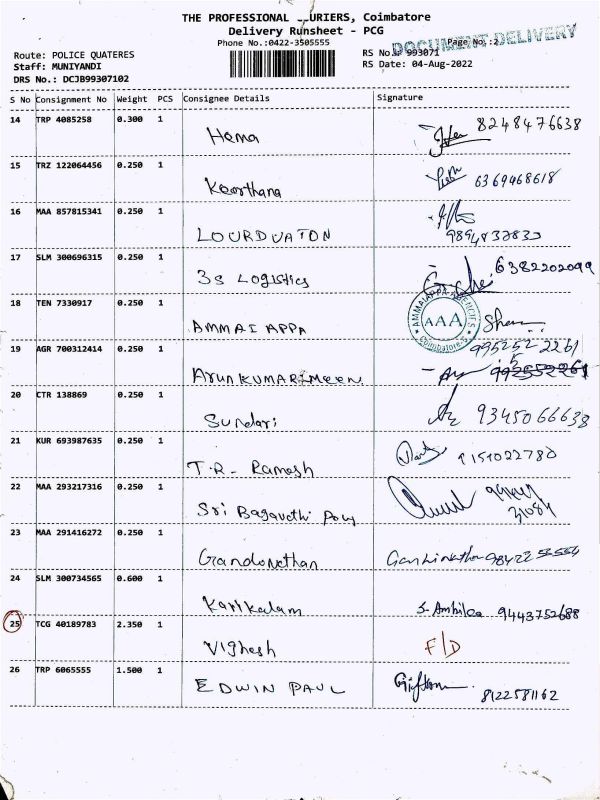 THE PROFESSIONAL COURIERS, Coimbatore
Delivery Runsheet - PCG
Phone No.:0422-3505555
DOCUMENT DELIVERY
Page No.:2
Route: POLICE QUATERES
RS No.: 993071
Staff: MUNIYANDI
RS Date: 04-Aug-2022
DRS No.: DCJB99307102
S No Consignment No Weight PCS Consignee Details Signature
14 TRP 4085258 0.300 1
Hema 8248476638
15 TRZ 122064456 0.250 1
Keerthana 6369468618
16 MAA 857815341 0.250 1
LOURDUATON
17 SLM 300696315 0.250 1
3s Logistics 6382202099
18 TEN 7330917 0.250 1
AMMAI APPA
AMMAIAPPA AGENCIES
AAA
Coimbatore-5
19 AGR 700312414 0.250 1
995252 2261
ARUNKUMAR
20 CTR 138869 0.250 1
Sundari 9345066638
21 KUR 693987635 0.250 1
T.R- Ramesh 9151022780
22 MAA 293217316 0.250 1
Sri Bagavathi
23 MAA 291416272 0.250 1
24 SLM 300734565 0.600 1
Karikalam 9443752688
25 TCG 40189783 2.350 1
Vighesh F/D
26 TRP 6065555 1.500 1
EDWIN PAUL 8122581162